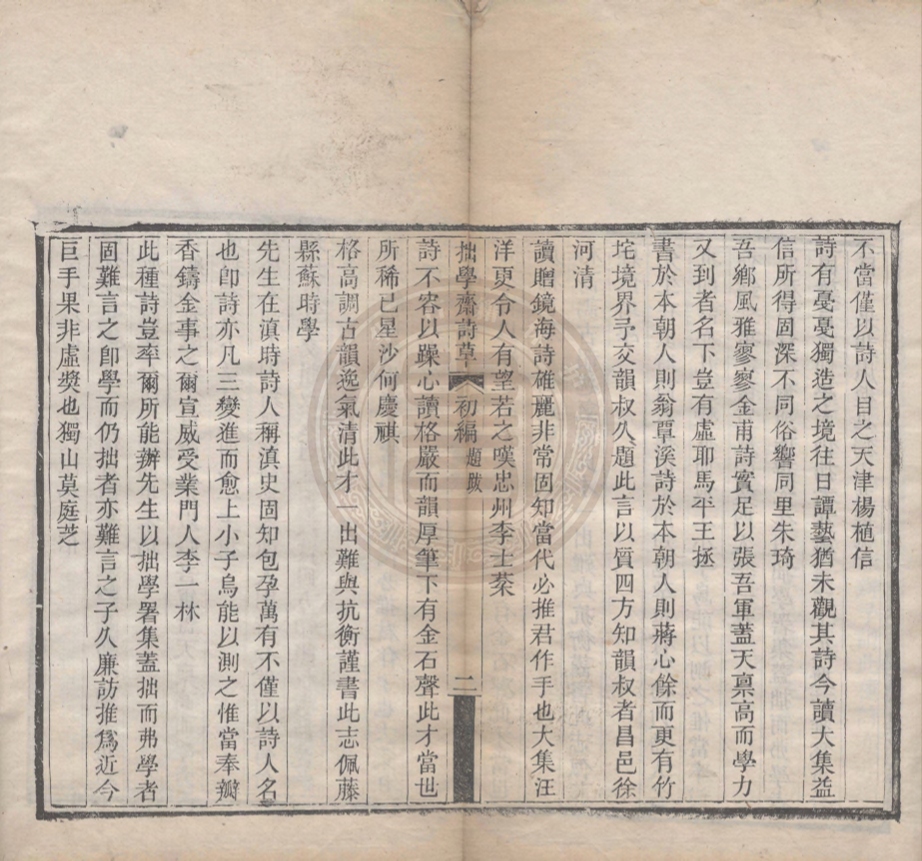 不當僅以詩人目之天津楊植信
詩有戛戛獨造之境往日譚藝猶未觀其詩今讀大集益
信所得固深不同俗響同里朱琦
吾鄉風雅寥寥金甫詩實足以張吾軍蓋天禀高而學力
又到者名下豈有虛耶馬平王拯
書於本朝人則翁覃溪詩於本朝人則蔣心餘而更有竹
垞境界予交韻叔久題此言以質四方知韻叔者昌邑徐
河清
讀贈鏡海詩雄麗非常固知當代必推君作手也大集汪
洋更令人有望若之嘆忠州李士棻
拙學齋詩草 初編 題跋 二
詩不容以躁心讀格嚴而韻厚筆下有金石聲此才當世
所稀已星沙何慶祺
格高調古韻逸氣清此才一出難與抗衡謹書此志佩藤
縣蘇時學
先生在滇時詩人稱滇史固知包孕萬有不僅以詩人名
也卽詩亦凡三變進而愈上小子烏能以測之惟當奉瓣
香鑄金事之爾宣威受業門人李一林
此種詩豈率爾所能辦先生以拙學署集蓋拙而弗學者
固難言之卽學而仍拙者亦難言之子久廉訪推爲近今
巨手果非虛獎也獨山莫庭芝